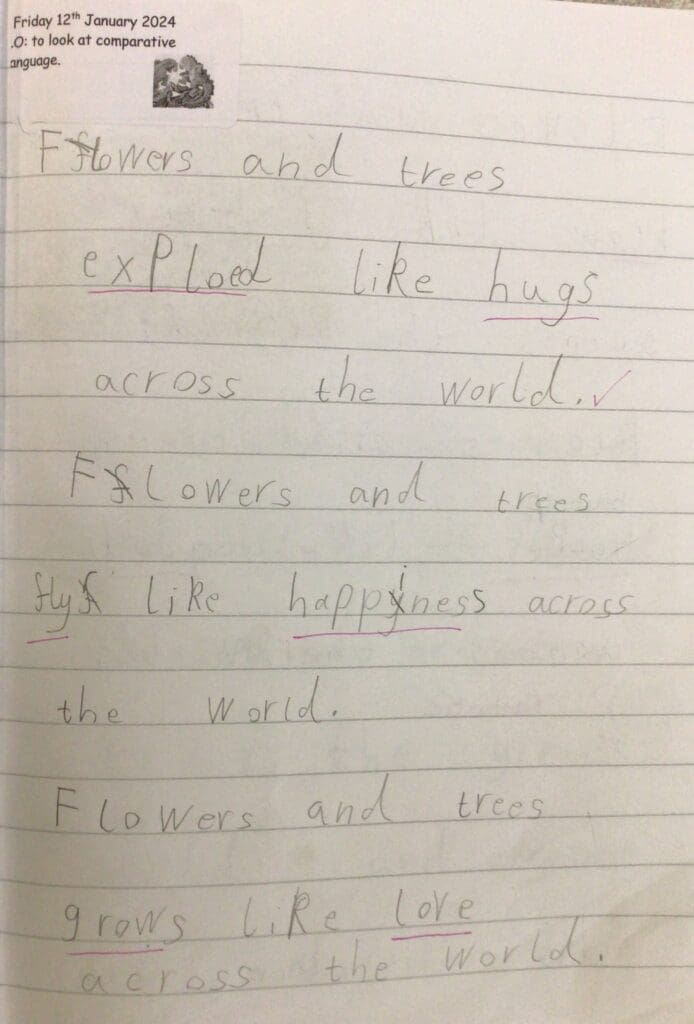 Friday 12th January 2024
.O: to look at comparative
anguage.
Flowers and trees
exploed like hugs
across the world.
Flowers and trees
fly like happiness across
the world.
Flowers and trees
grows like love
across the world.